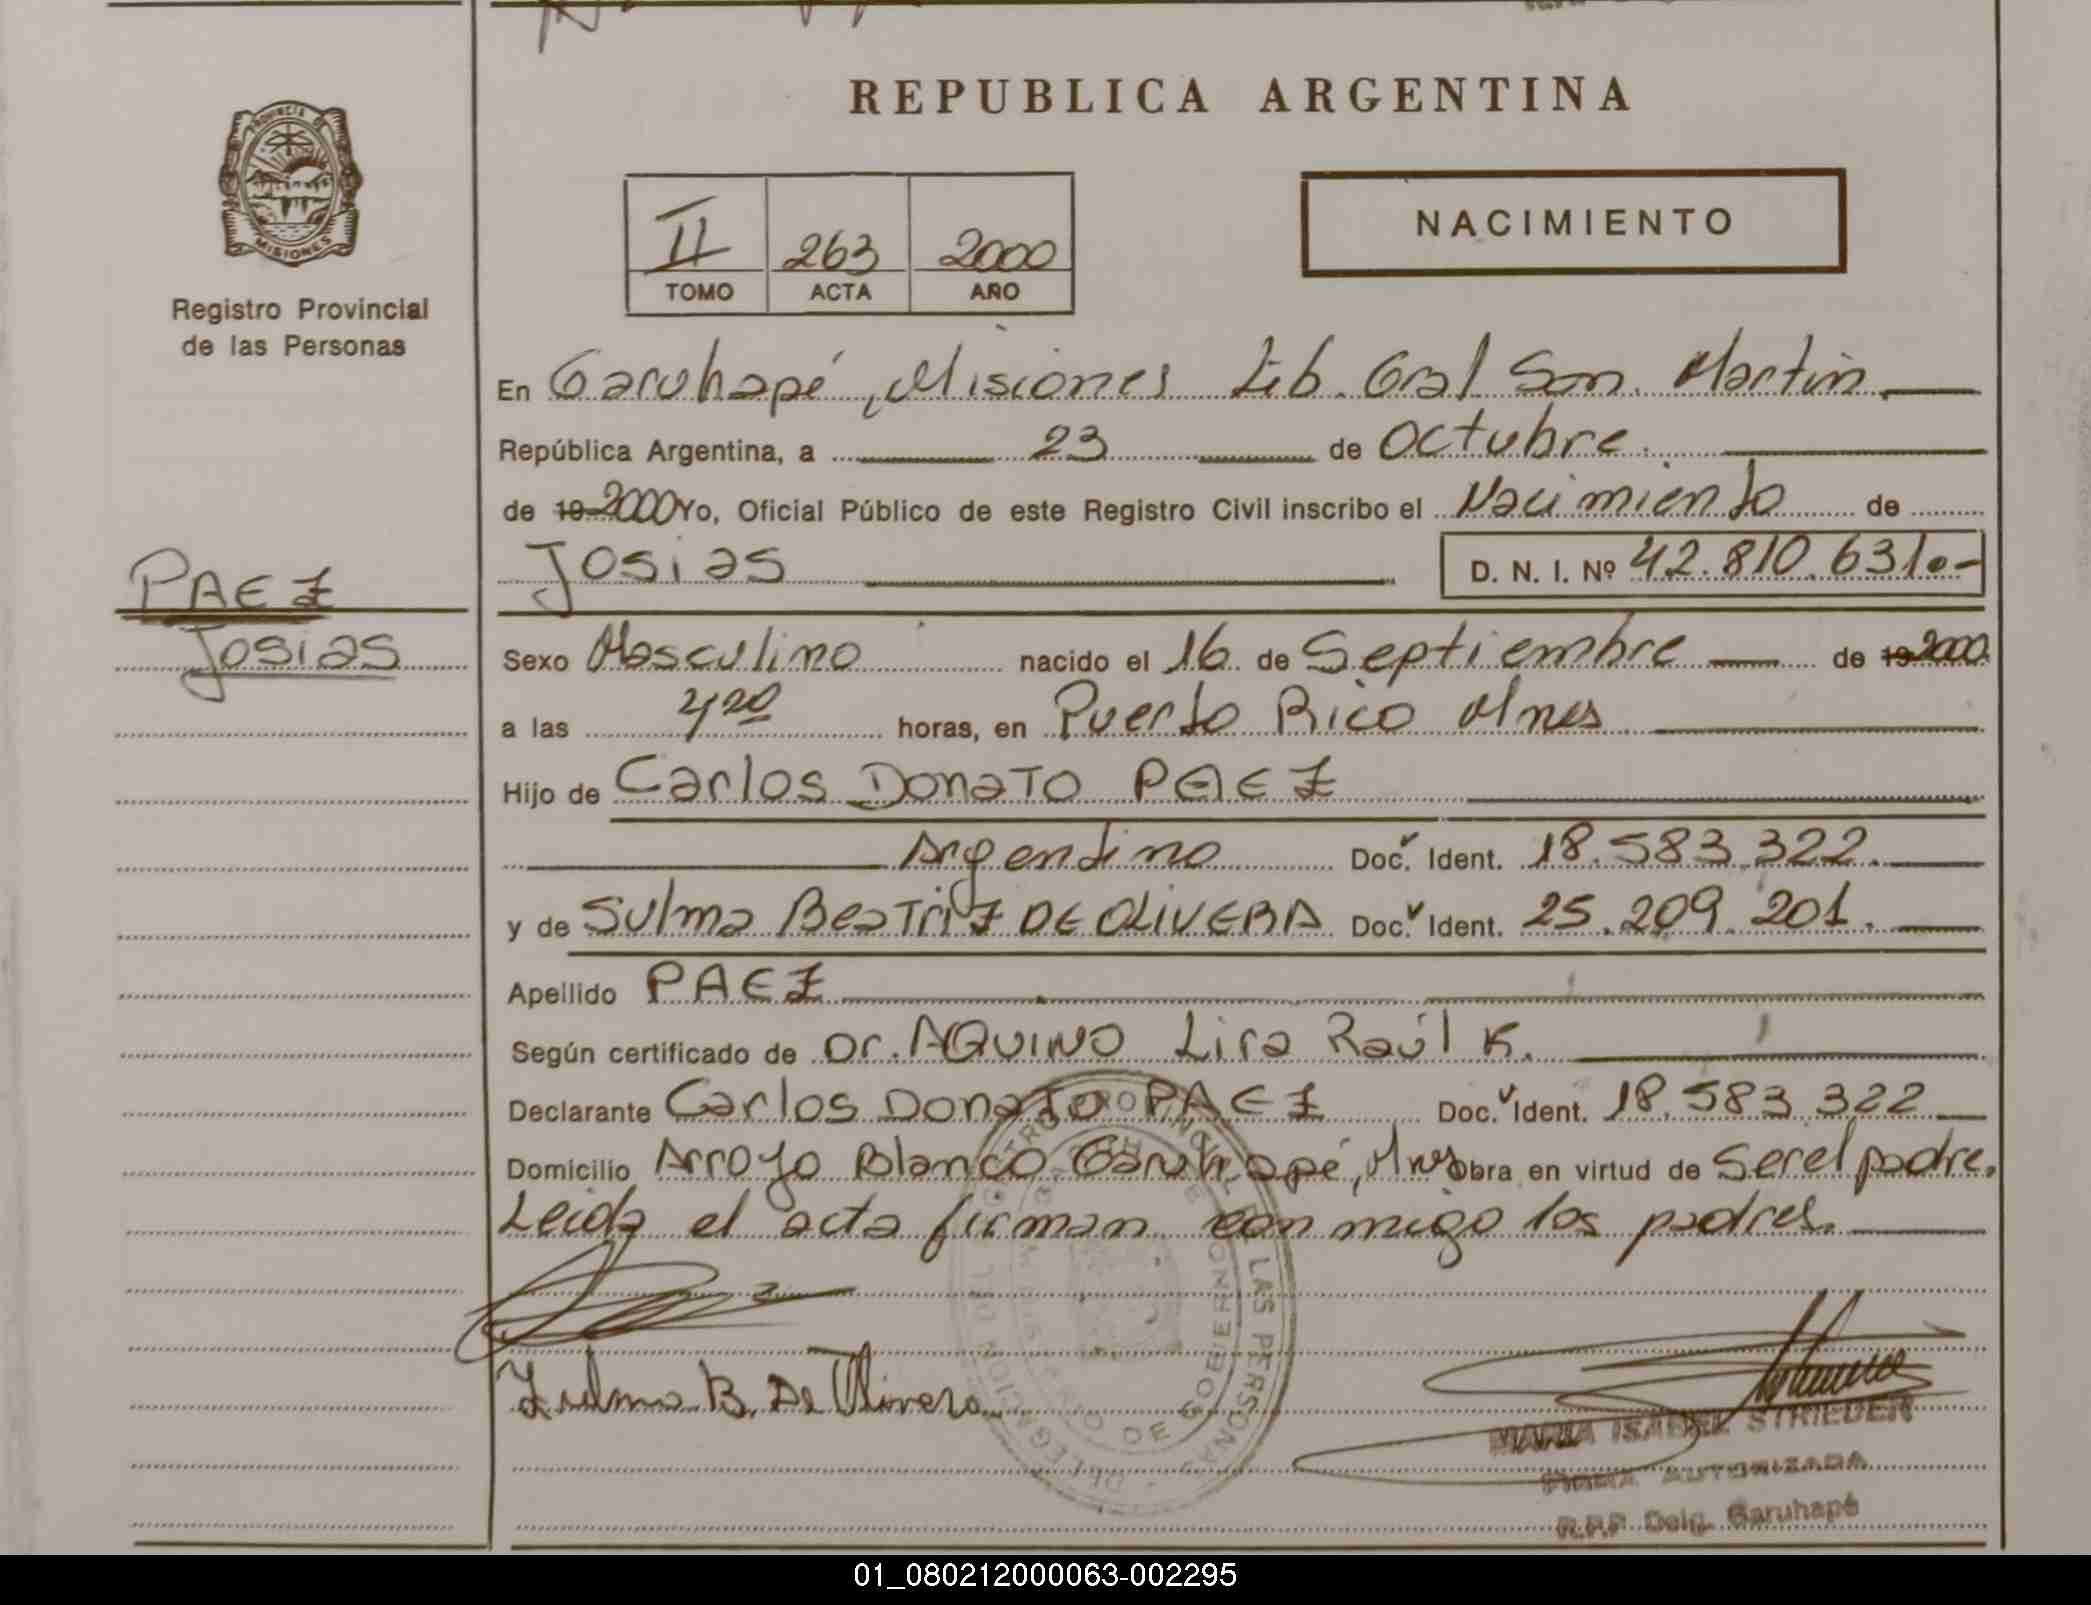 REPUBLICA ARGENTINA
PROVINCIA DE
MISIONES
Registro Provincial
de las Personas
II 263 2000
TOMO ACTA AÑO
NACIMIENTO
En Garuhapé, Misiones Lib. Gral San. Martin
República Argentina, a 23 de Octubre.
de 19 2000 Yo, Oficial Público de este Registro Civil inscribo el Nacimiento de
Josias D. N. I. Nº 42.810.631.-
PAEZ
Josias
Sexo Masculino nacido el 16 de Septiembre de 19 2000
a las 4,20 horas, en Puerto Rico Mnes
Hijo de Carlos Donato PAEZ
Argentino Doc. Ident. 18.583.322.
y de Sulma Beatriz DE OLIVERA Doc. Ident. 25.209.201.
Apellido PAEZ
Según certificado de Dr. AQUINO Lira Raúl K.
Declarante Carlos Donato PAEZ Doc. Ident. 18.583.322
Domicilio Arroyo Blanco Garuhapé, Mnes Obra en virtud de Ser el padre.
Leida el acta firman conmigo los padres.
Zulma B. De Olivera
MARIA ISABEL STRIEDER
FIRMA AUTORIZADA
R.P.P Delg. Garuhapé
01_080212000063-002295